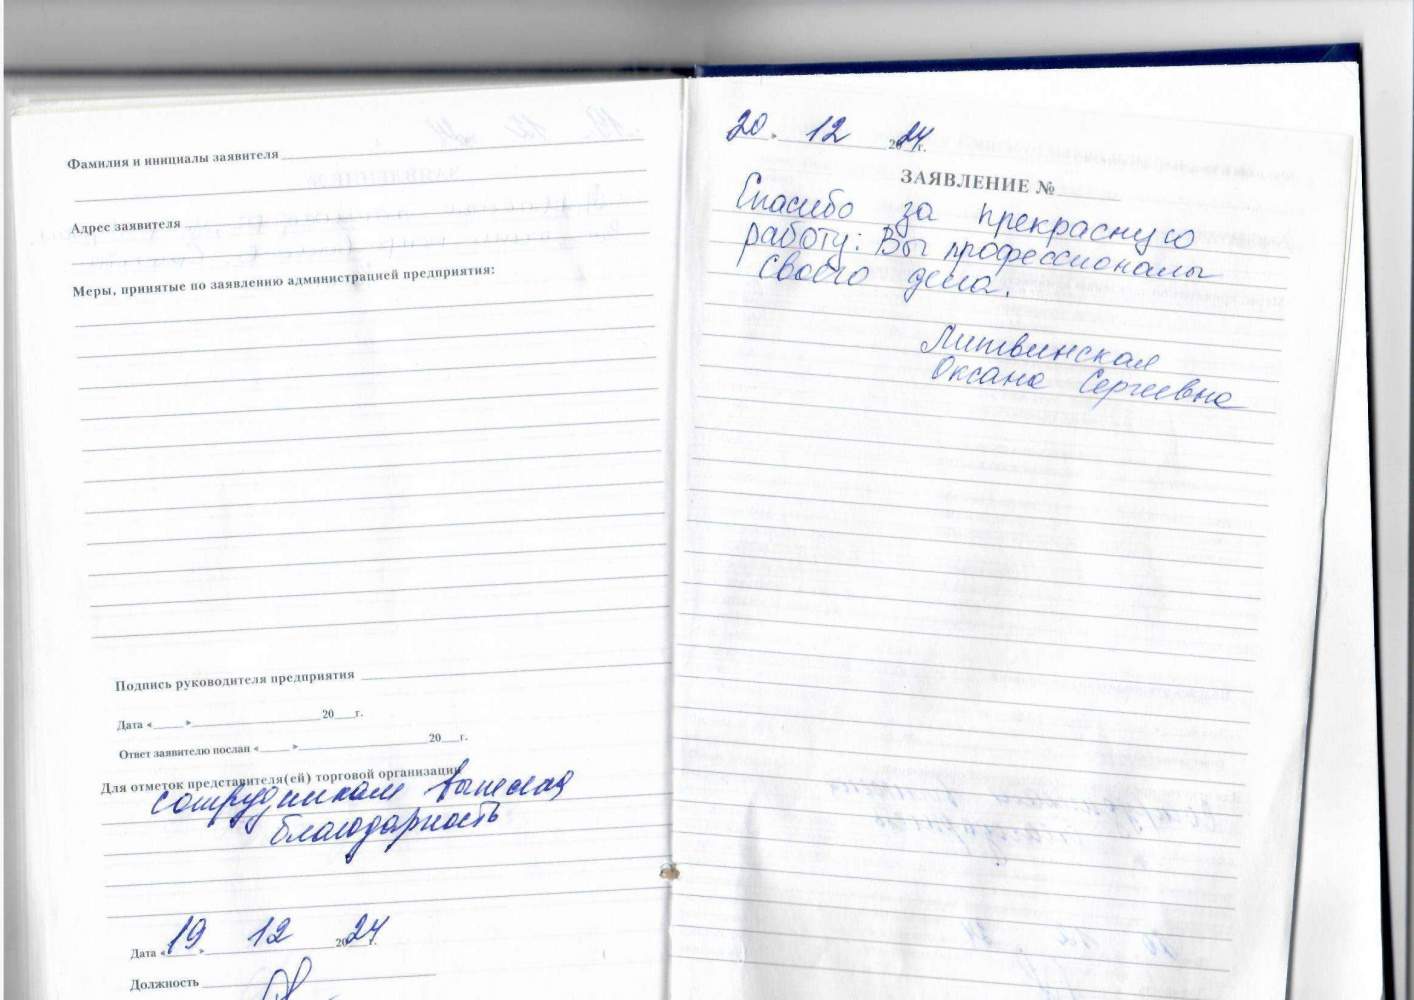 Фамилия и инициалы заявителя
Адрес заявителя
Меры, принятые по заявлению администрацией предприятия:
Подпись руководителя предприятия
Дата « » 20 г.
Ответ заявителю послан « » 20 г.
Для отметок представителя(ей) торговой организации
сотрудникам вынесена
благодарность
Дата « 19 » 12 2024 г.
Должность
20 » 12 2024 г.
ЗАЯВЛЕНИЕ №
Спасибо за прекрасную
работу: Вы профессионалы
своего дела.
Литвинская
Оксана Сергеевна